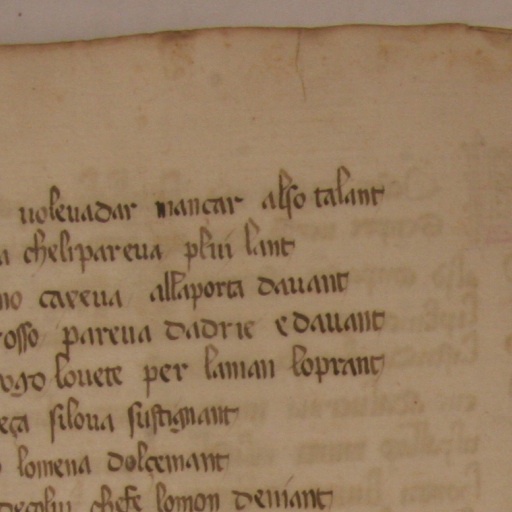 uoleuadar mancar also talant
a chelipareua plui lant
no careua allaporta dauant
rosso pareua dadrie edauant
ogo louete per laman loprant
eça silova sustignant
lomena dolçemant
deçolui chese lomon deniant